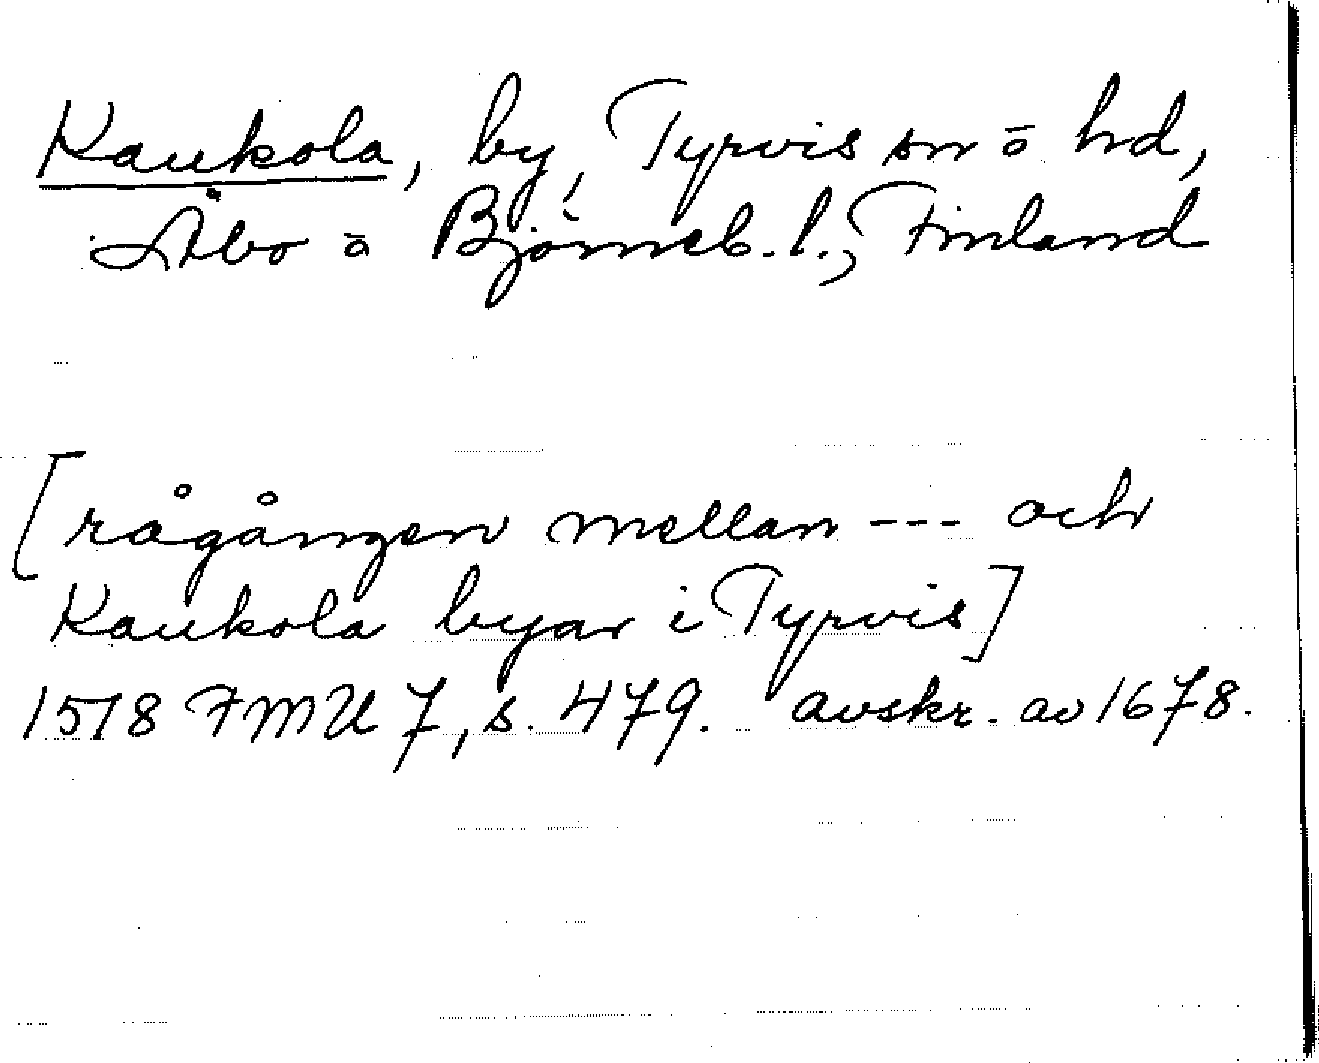 Kaukola, by, Tyrvis sn o hd,
Åbo o Björneb. l., Finland
[rågången mellan --- och
Kaukola byar i Tyrvis]
1518 FMU 7, s. 479. avskr. av 1678.